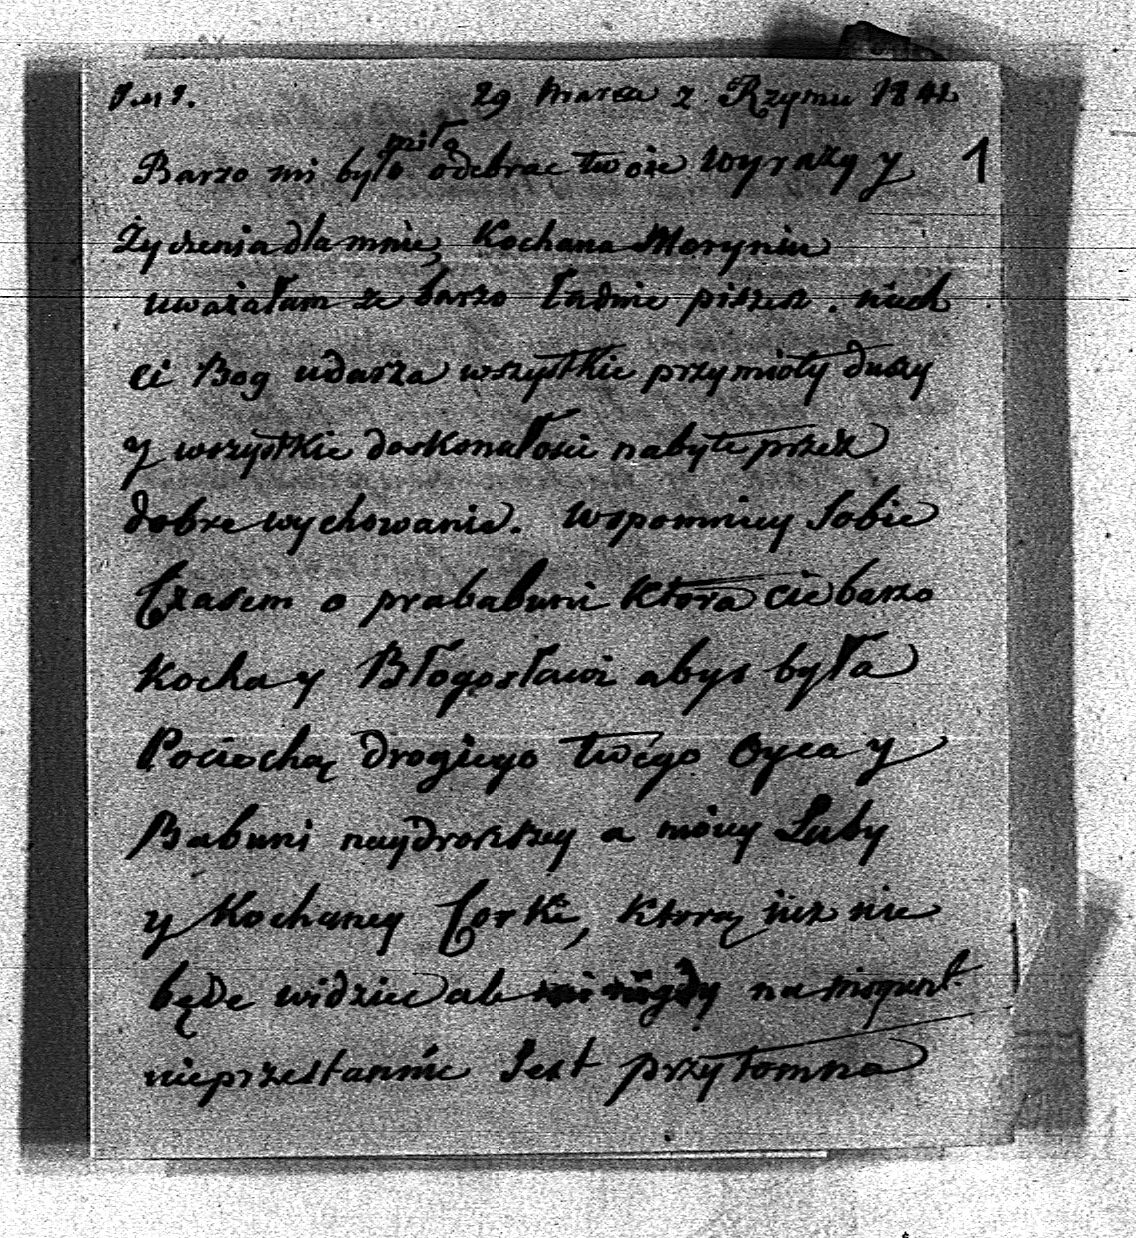 J.M J. 29 Marca z Rzymu 1842
Barzo mi było miło odebrac twoie wyrazy y 1
Życzenia dla mnie, Kochana Maryniu
uważałam ze barzo ładnie piszesz. niech
ci Bog udarza wszystkie przymioty duszy
y wszystkie doskonałosci nabyte przez
dobre wychowanie. Wspomniey Sobie
Czasem o prababuni która cie barzo
kocha y Błogosławi abys była
Pociechą drogiego twégo Oyca y
Babuni naydrokszey a mòiey Luby
y Kochaney Corki, którą iuz nie
będe widziec ale na
nieprzestannie Jest przytomna